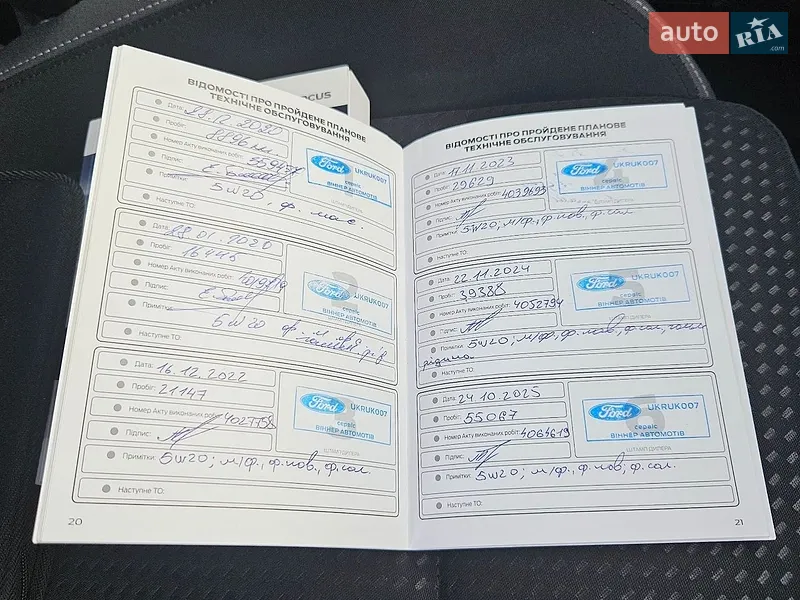 auto RIA .com
OCUS
ВІДОМОСТІ ПРО ПРОЙДЕНЕ ПЛАНОВЕ
ТЕХНІЧНЕ ОБСЛУГОВУВАННЯ
Дата:
Пробіг: 8896 км
Номер Акту виконаних робіт:
Підпис:
Примітки:
5W20, ф. мас.
Наступне ТО:
Ford UKRUK007
сервіс
ВІННЕР АВТОМОТІВ
Дата: 28.01.2020
Пробіг: 16446
Номер Акту виконаних робіт:
Підпис:
Примітки:
5W20 ф.
Наступне ТО:
Ford UKRUK007
сервіс
ВІННЕР АВТОМОТІВ
Дата: 16.12.2022
Пробіг: 21147
Номер Акту виконаних робіт: 4027758
Підпис:
Примітки: 5W20; м/ф., ф.пов., ф.сал.
Наступне ТО:
Ford UKRUK007
сервіс
ВІННЕР АВТОМОТІВ
ШТАМП ДИЛЕРА
20
ВІДОМОСТІ ПРО ПРОЙДЕНЕ ПЛАНОВЕ
ТЕХНІЧНЕ ОБСЛУГОВУВАННЯ
Дата: 17.11.2023
Пробіг: 29629
Номер Акту виконаних робіт: 4039693
Підпис:
Примітки: 5W20; м/ф., ф.пов., ф.сал
Наступне ТО:
Ford UKRUK007
сервіс
ВІННЕР АВТОМОТІВ
Дата: 22.11.2024
Пробіг: 39388
Номер Акту виконаних робіт: 4052794
Підпис:
Примітки: 5W20; м/ф, ф.пов, ф.сал, гальм
рідина
Наступне ТО:
Ford UKRUK007
сервіс
ВІННЕР АВТОМОТІВ
Дата: 24.10.2025
Пробіг: 55067
Номер Акту виконаних робіт: 4064619
Підпис:
Примітки: 5W20; м/ф., ф.пов; ф.сал.
Наступне ТО:
Ford UKRUK007
сервіс
ВІННЕР АВТОМОТІВ
ШТАМП ДИЛЕРА
21